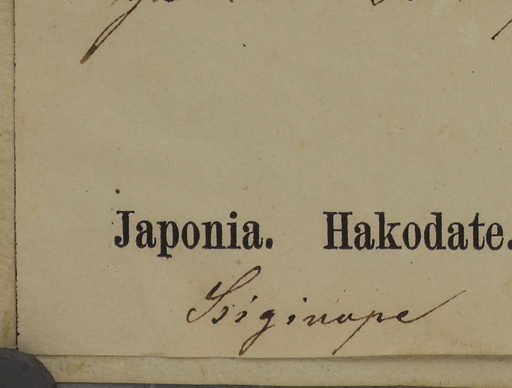 Japonia. Hakodate.
Tsiginope